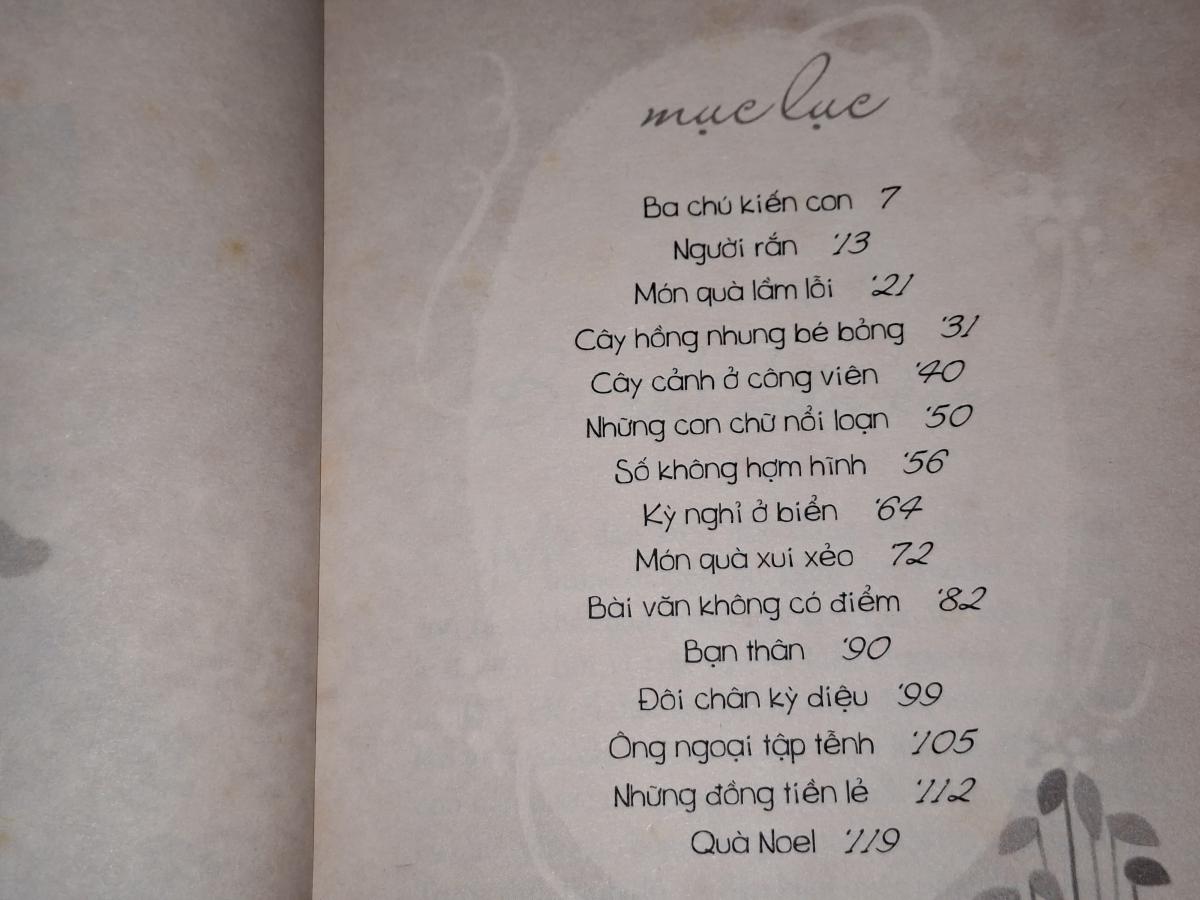 mục lục
Ba chú kiến con 7
Người rắn 13
Món quà lầm lỗi 21
Cây hồng nhung bé bỏng 31
Cây cảnh ở công viên 40
Những con chữ nổi loạn 50
Số không hợm hĩnh 56
Kỳ nghỉ ở biển 64
Món quà xui xẻo 72
Bài văn không có điểm 82
Bạn thân 90
Đôi chân kỳ diệu 99
Ông ngoại tập tễnh 105
Những đồng tiền lẻ 112
Quà Noel 119